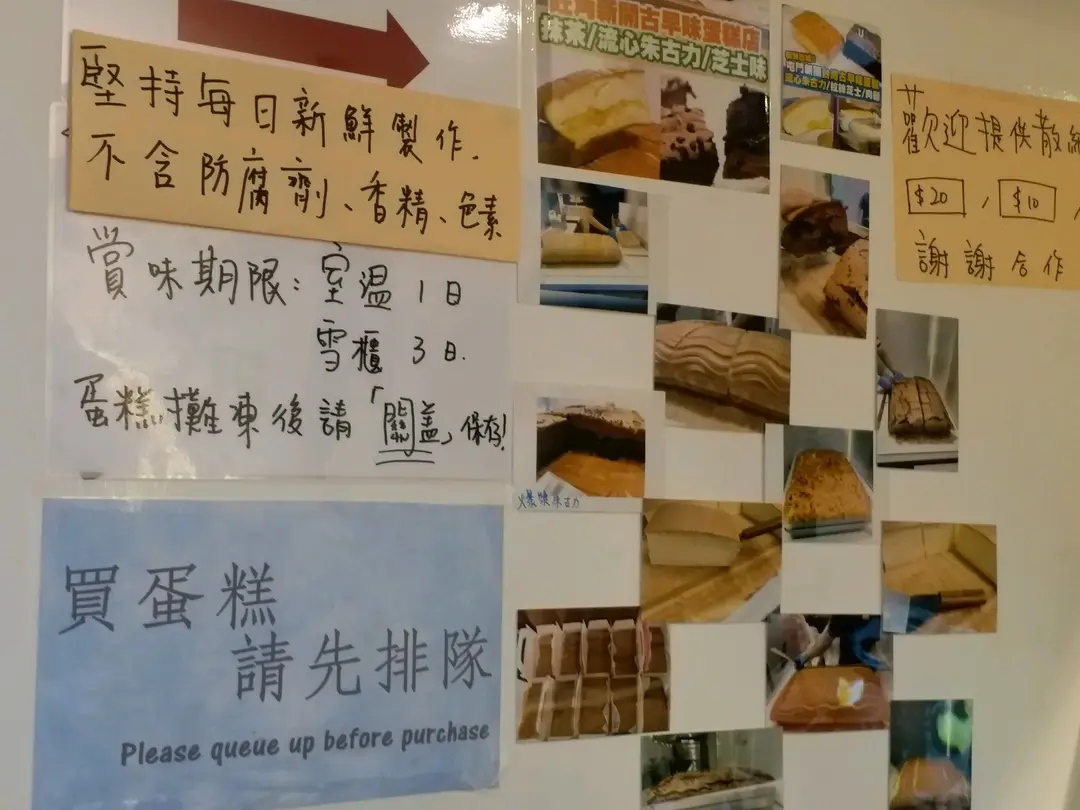 堅持每日新鮮製作.
不含防腐劑、香精、色素
賞味期限: 室温 1日
雪櫃 3日.
蛋糕攤凍後請「關盖」保存!
買蛋糕
請先排隊
Please queue up before purchase
旺角新開古早味蛋糕店
抹茶/流心朱古力/芝士味
流心朱古力
朱古力
歡迎提供散紙
$20 , $10 ,
謝謝合作